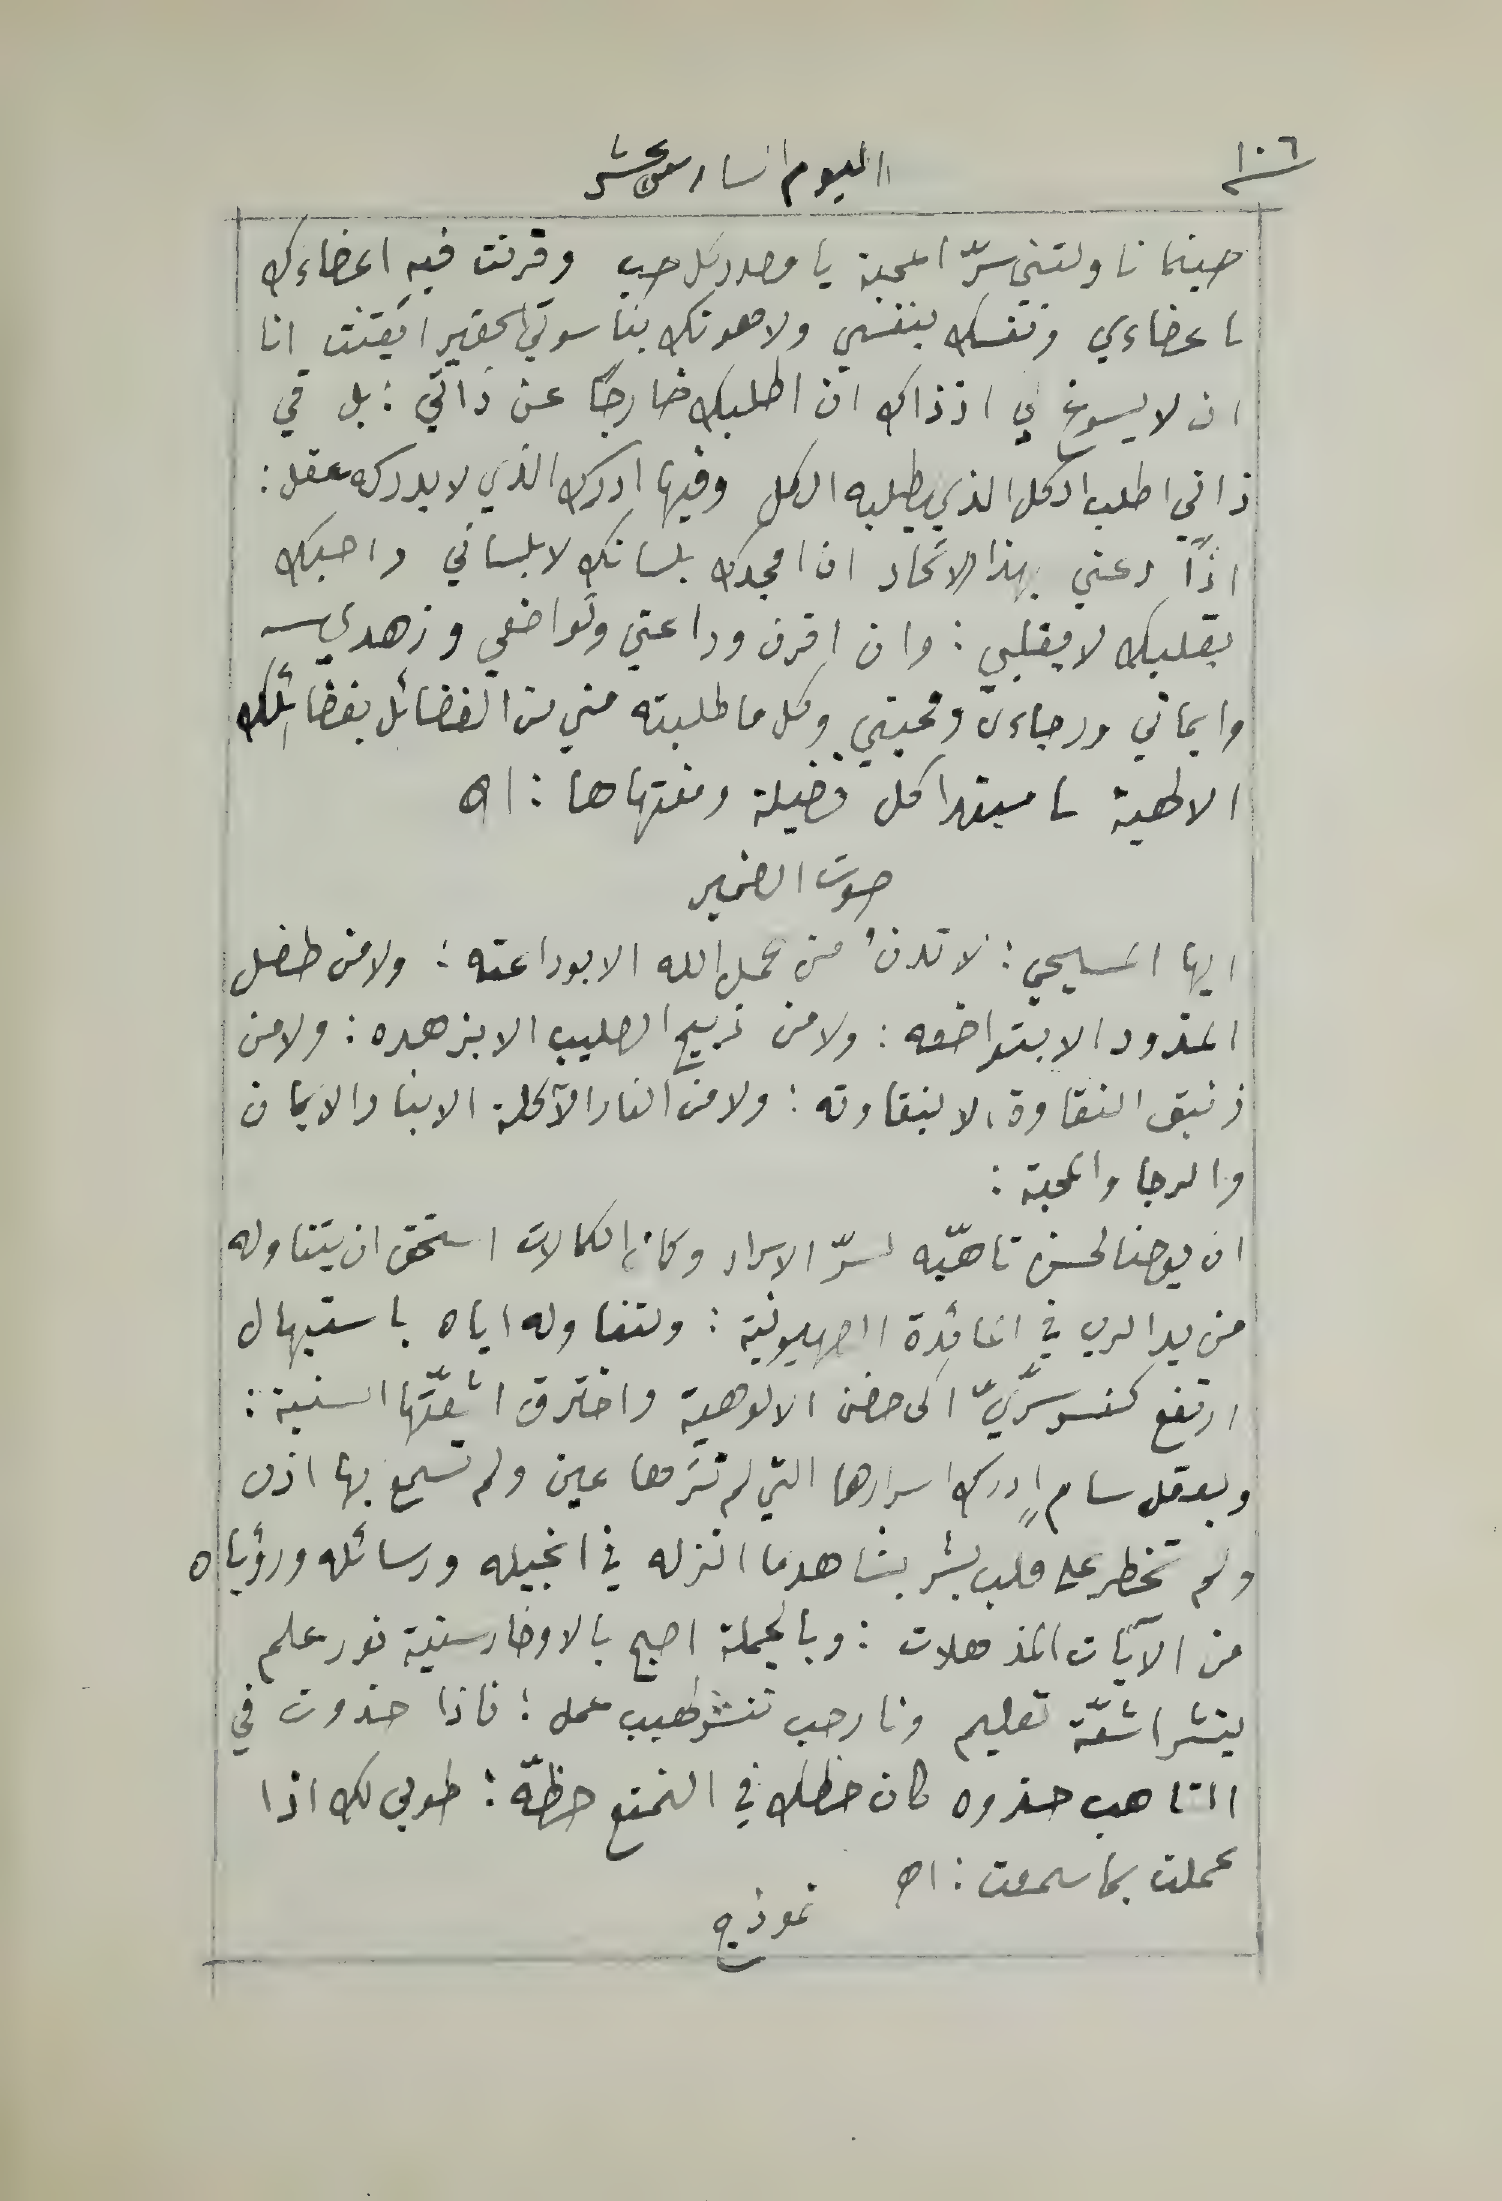 ١٠٦
اليوم السادس عشر
حينما ناولتني سرّ المحبة يا مصدر كل حب وقرنت فيه اعضاءك
باعضاءي ونفسك بنفسي ولاهوتك بناسوتي الحقير ايقنت انا
ان لا يسوغ لي اذ ذاك ان اطلبك خارجًا عن ذاتي : بل في
ذاتي اطلب الكل الذي يطلبه الكل وفيها ادرك الذي لا يدركه عقل :
اذًا دعني بهذا الاتحاد ان امجدك بلسانك لا بلساني واحبك
بقلبك لا بقلبي : وان اقرن وداعتي وتواضعي وزهدي
وايماني ورجاءي ومحبتي وكل ما طلبته مني من الفضائل بفضائلك
الالهية يا مبتدا كل فضيلة ومنتهاها : اه
صوت الضمير
ايها المسيحي : لا تدنُ من حمل الله الا بوداعته : ولا من طفل
المذود الا بتواضعه : ولا من ذبيح الصليب الا بزهده : ولا من
زنبق النقاوة الا بنقاوته : ولا من النار الآكلة الا بنار الايمان
والرجا والمحبة :
ان يوحنا لحسن تاهّبه لسرّ الاسرار وكانه الكمالات استحق ان يتناوله
من يد الرب في المائدة الصهيونية : ولتناوله اياه باستيهال
ارتفع كنسر سرّيّ الى حضن الالوهية واخترق اشعّتها السنية :
وبعقل سامٍ ادرك اسرارها التي لم تَرَها عين ولم تسمع بها اذن
ولم تخطر على قلب بشر بشاهد ما انزله في انجيله ورسائله ورؤياه
من الآيات المذهلات : وبالجملة اصبح بالاوخارستية نور علم
ينشر اشعّة تعليم ونار حب تنشر لهيب عمل : فاذا حذوت في
التاهب حذوه كان حظك في التمتع حظّه : طوبى لك اذا
عملت بما سمعت : اه
نموذج